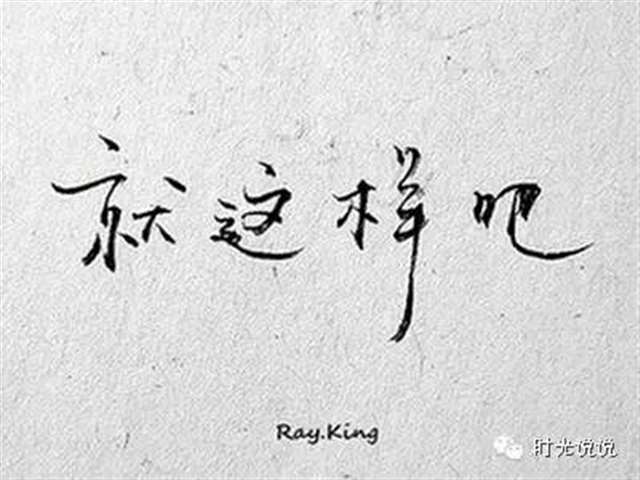 就这样吧
Ray.King
时光说说